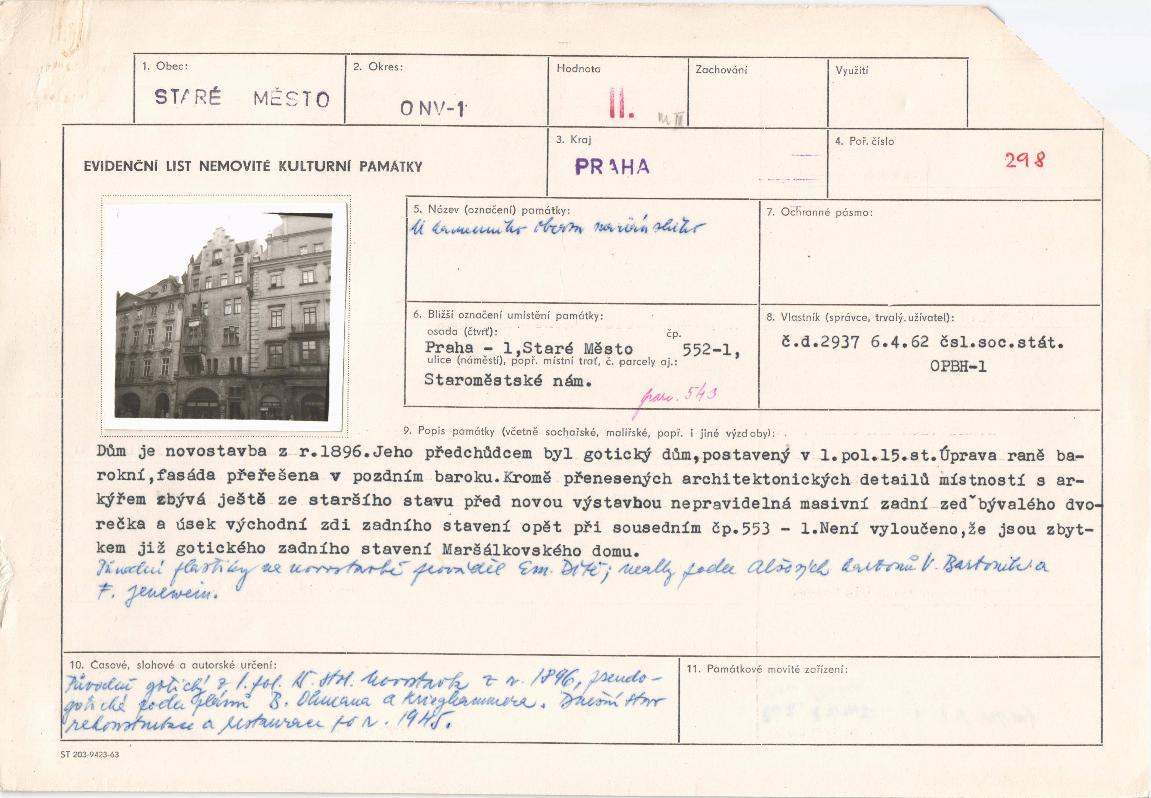 1. Obec:
STARÉ MĚSTO
2. Okres:
ONV-1
Hodnota
II.
Zachování
Využití
EVIDENČNÍ LIST NEMOVITÉ KULTURNÍ PAMÁTKY
3. Kraj
PRAHA
4. Poř. číslo
298
5. Název (označení) památky:
U kamenného
7. Ochranné pásmo:
6. Bližší označení umístění památky:
osada (čtvrť): čp.
Praha - 1,Staré Město 552-1,
ulice (náměstí), popř. místní trať, č. parcely aj.:
Staroměstské nám.
parc. 543
8. Vlastník (správce, trvalý. uživatel):
č.d.2937 6.4.62 čsl.soc.stát.
OPBH-1
9. Popis památky (včetně sochařské, malířské, popř. i jiné výzdoby):
Dům je novostavba z r.1896.Jeho předchůdcem byl gotický dům,postavený v 1.pol.15.st.Úprava raně ba-
rokní,fasáda přeřešena v pozdním baroku.Kromě přenesených architektonických detailů místností s ar-
kýřem zbývá ještě ze staršího stavu před novou výstavbou nepravidelná masivní zadní zeď bývalého dvo-
rečka a úsek východní zdi zadního stavení opět při sousedním čp.553 - 1.Není vyloučeno,že jsou zbyt-
kem již gotického zadního stavení Maršálkovského domu.
Původní plastiky na novostavbě prováděl Em. podle Alšových kartonů a
F. Jenewein.
10. Časové, slohové a autorské určení:
Původní gotický z 1. pol. 15. stol. Novostavba z r. 1896, pseudo-
gotická podle plánů B. Ohmana a Krieghammera. Dnešní stav
rekonstrukce a restaurace po r. 1945.
11. Památkové movité zařízení:
ST 203-9423-63